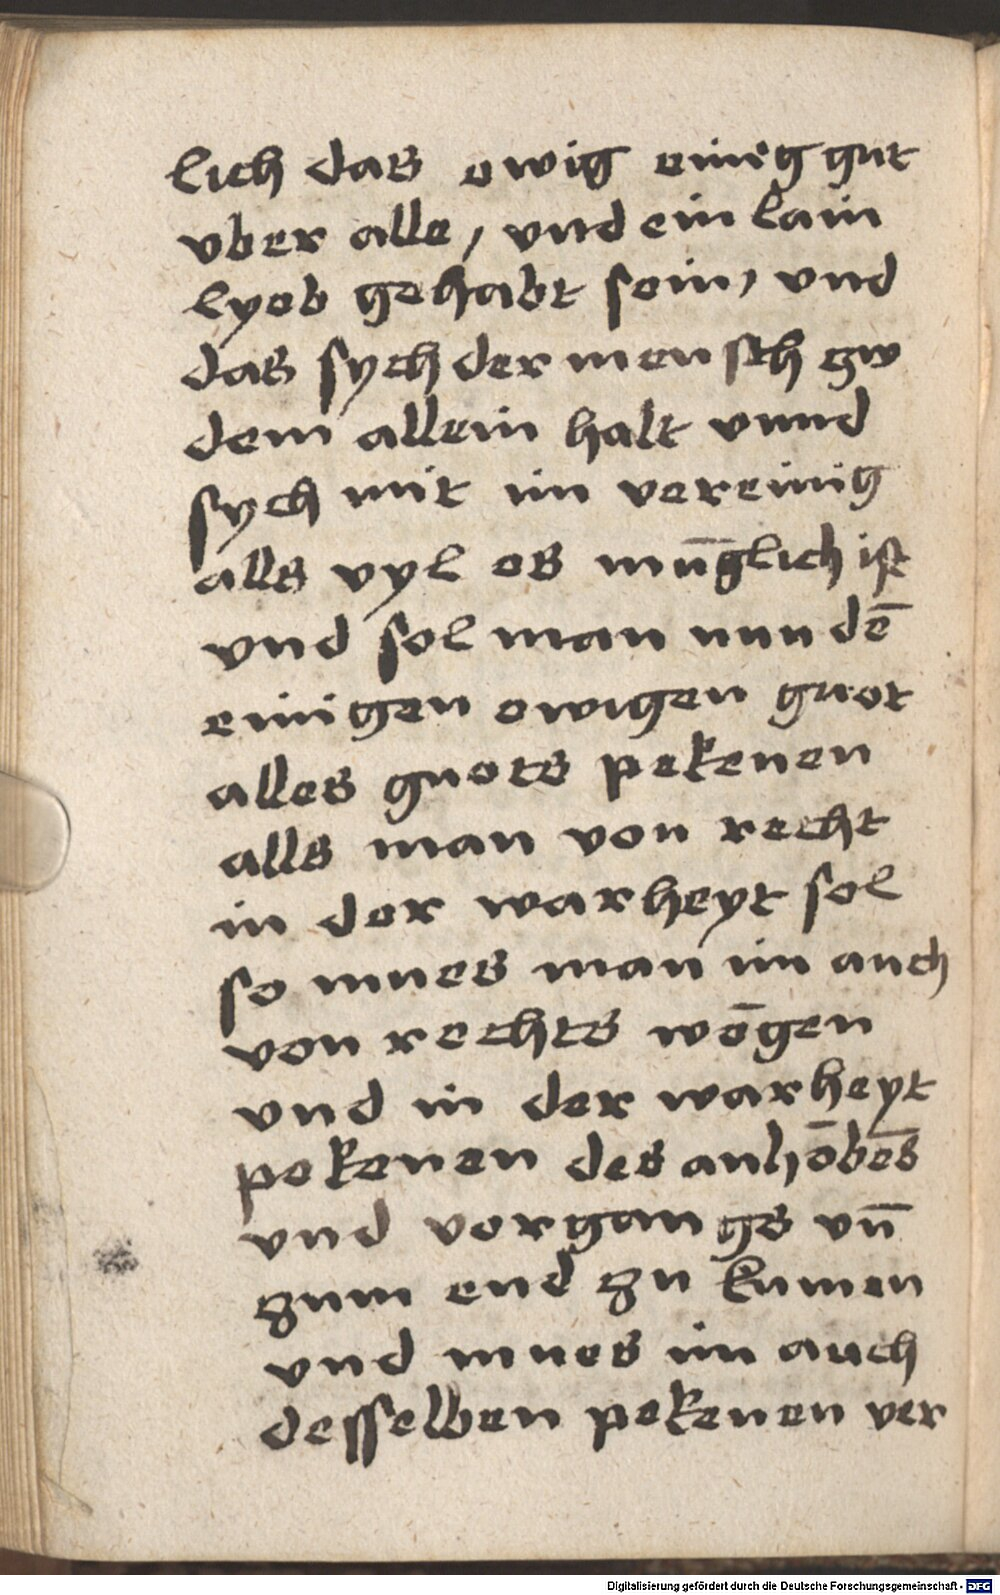 lich das ewig einig gut
vber alle, vnd ein lain
lyeb gehabt sein, vnd
das sych der mensch zw
dem allein halt vnnd
sych mit im vereinig
alls vyl es mūglich ist
vnd sol man nun dē
einigen ewigen guot
alles guots pekenen
alls man von recht
in der warheyt sol
so mues man im auch
von rechts wēgen
vnd in der warheyt
pekenen des anhēbēs
vnd vorgangs vn̄
zum end zu kumen
vnd mues im auch
desselben pekenen ver
Digitalisierung gefördert durch die Deutsche Forschungsgemeinschaft - DFG